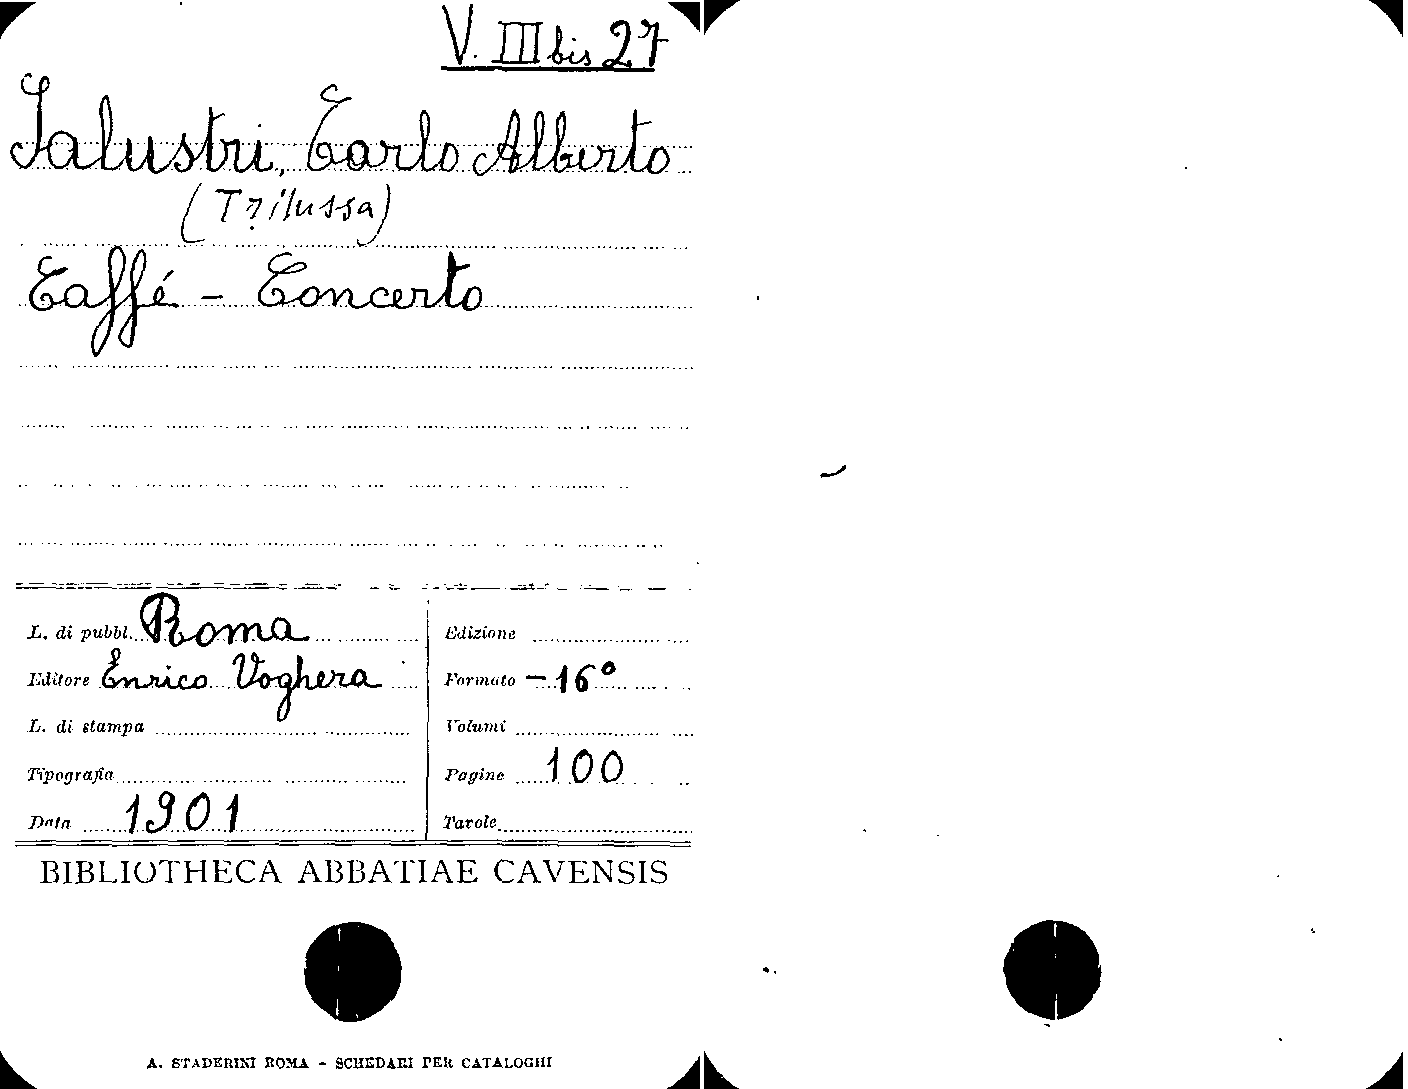 V. III bis 27
Salustri, Carlo Alberto
(Trilussa)
Caffé - Concerto
L. di pubbl. Roma
Editore Enrico Voghera
L. di stampa
Tipografia
Data 1901
Edizione
Formato - 16°
Volumi
Pagine 100
Tavole
BIBLIOTHECA ABBATIAE CAVENSIS
A. STADERINI ROMA - SCHEDARI PER CATALOGHI